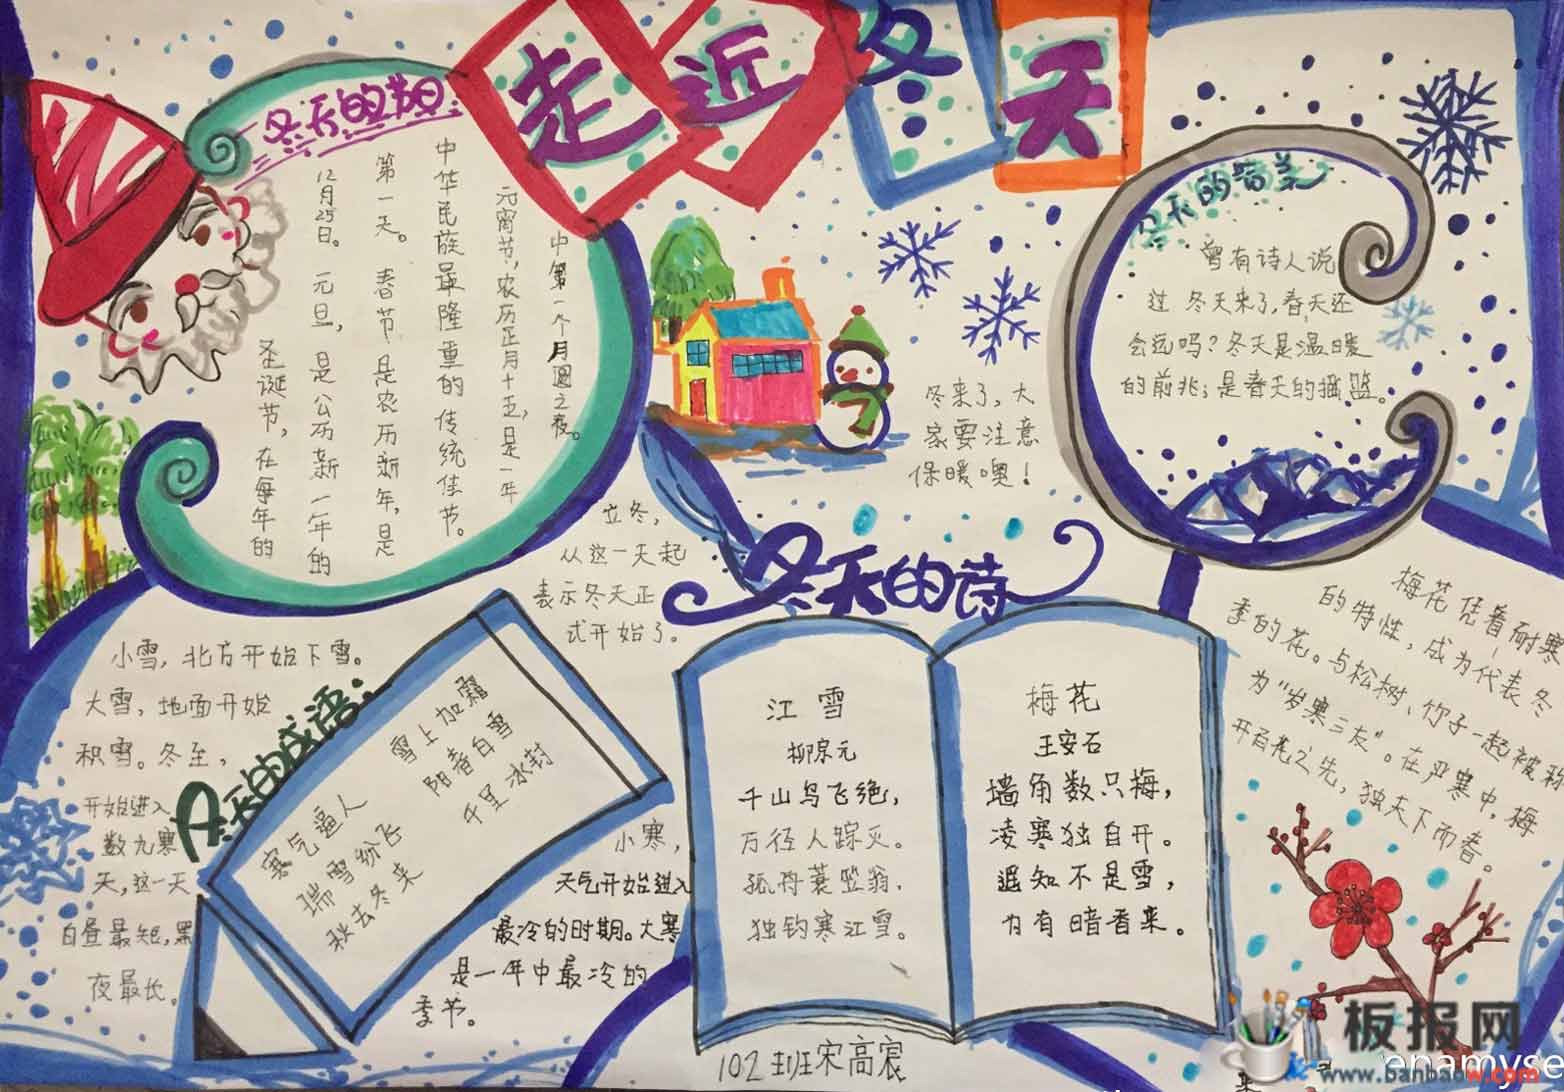 走近冬天
冬天的节日
圣诞节，在每年的
12月25日。元旦，是公历新一年的
第一天。春节是农历新年，是
中华民族最隆重的传统佳节。
元宵节，农历正月十五，是一年
中第一个月圆之夜。
冬来了，大
家要注意
保暖噢！
冬天的
曾有诗人说
过 冬天来了，春天还
会远吗？冬天是温暖
的前兆；是春天的摇篮。
立冬，
从这一天起
表示冬天正
式开始了。
小雪，北方开始下雪。
大雪，地面开始
积雪。冬至，
开始进入
数九寒
天，这一天
白昼最短，黑
夜最长。
冬天的成语：
雪上加霜
阳春白雪
千里冰封
寒气逼人
瑞雪纷飞
秋去冬来
小寒，
天气开始进入
最冷的时期。大寒
是一年中最冷的
季节。
冬天的诗
江雪
柳宗元
千山鸟飞绝，
万径人踪灭。
孤舟蓑笠翁，
独钓寒江雪。
梅花
王安石
墙角数只梅，
凌寒独自开。
遥知不是雪，
为有暗香来。
梅花凭着耐寒
的特性，成为代表冬
季的花。与松树、竹子一起被称
为“岁寒三友”。在严寒中，梅
开百花之先，独天下而春。
102班宋高宸
板报网
www.banbaow.com
enamyse